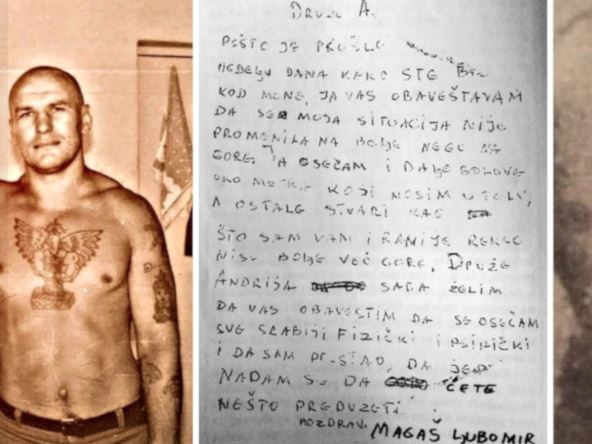 DRUŽE A.
POŠTO JE PROŠLO
NEDELJU DANA KAKO STE
KOD MENE, JA VAS OBAVEŠTAVAM
DA SE MOJA SITUACIJA NIJE
PROMENILA NA BOLJE NEGO NA
GORE. JA OSEĆAM I DALJE BOLOVE
OKO METKA KOJI NOSIM U TELU,
A OSTALE STVARI KAO
ŠTO SAM VAM I RANIJE REKAO
NISU BOLJE VEĆ GORE. DRUŽE
ANDRIJA SADA ŽELIM
DA VAS OBAVESTIM DA SE OSEĆAM
SVE SLABIJI FIZIČKI I PSIHIČKI
I DA SAM DA
NADAM SE DA ĆETE
NEŠTO PREDUZETI.
POZDRAV MAGAŠ LJUBOMIR